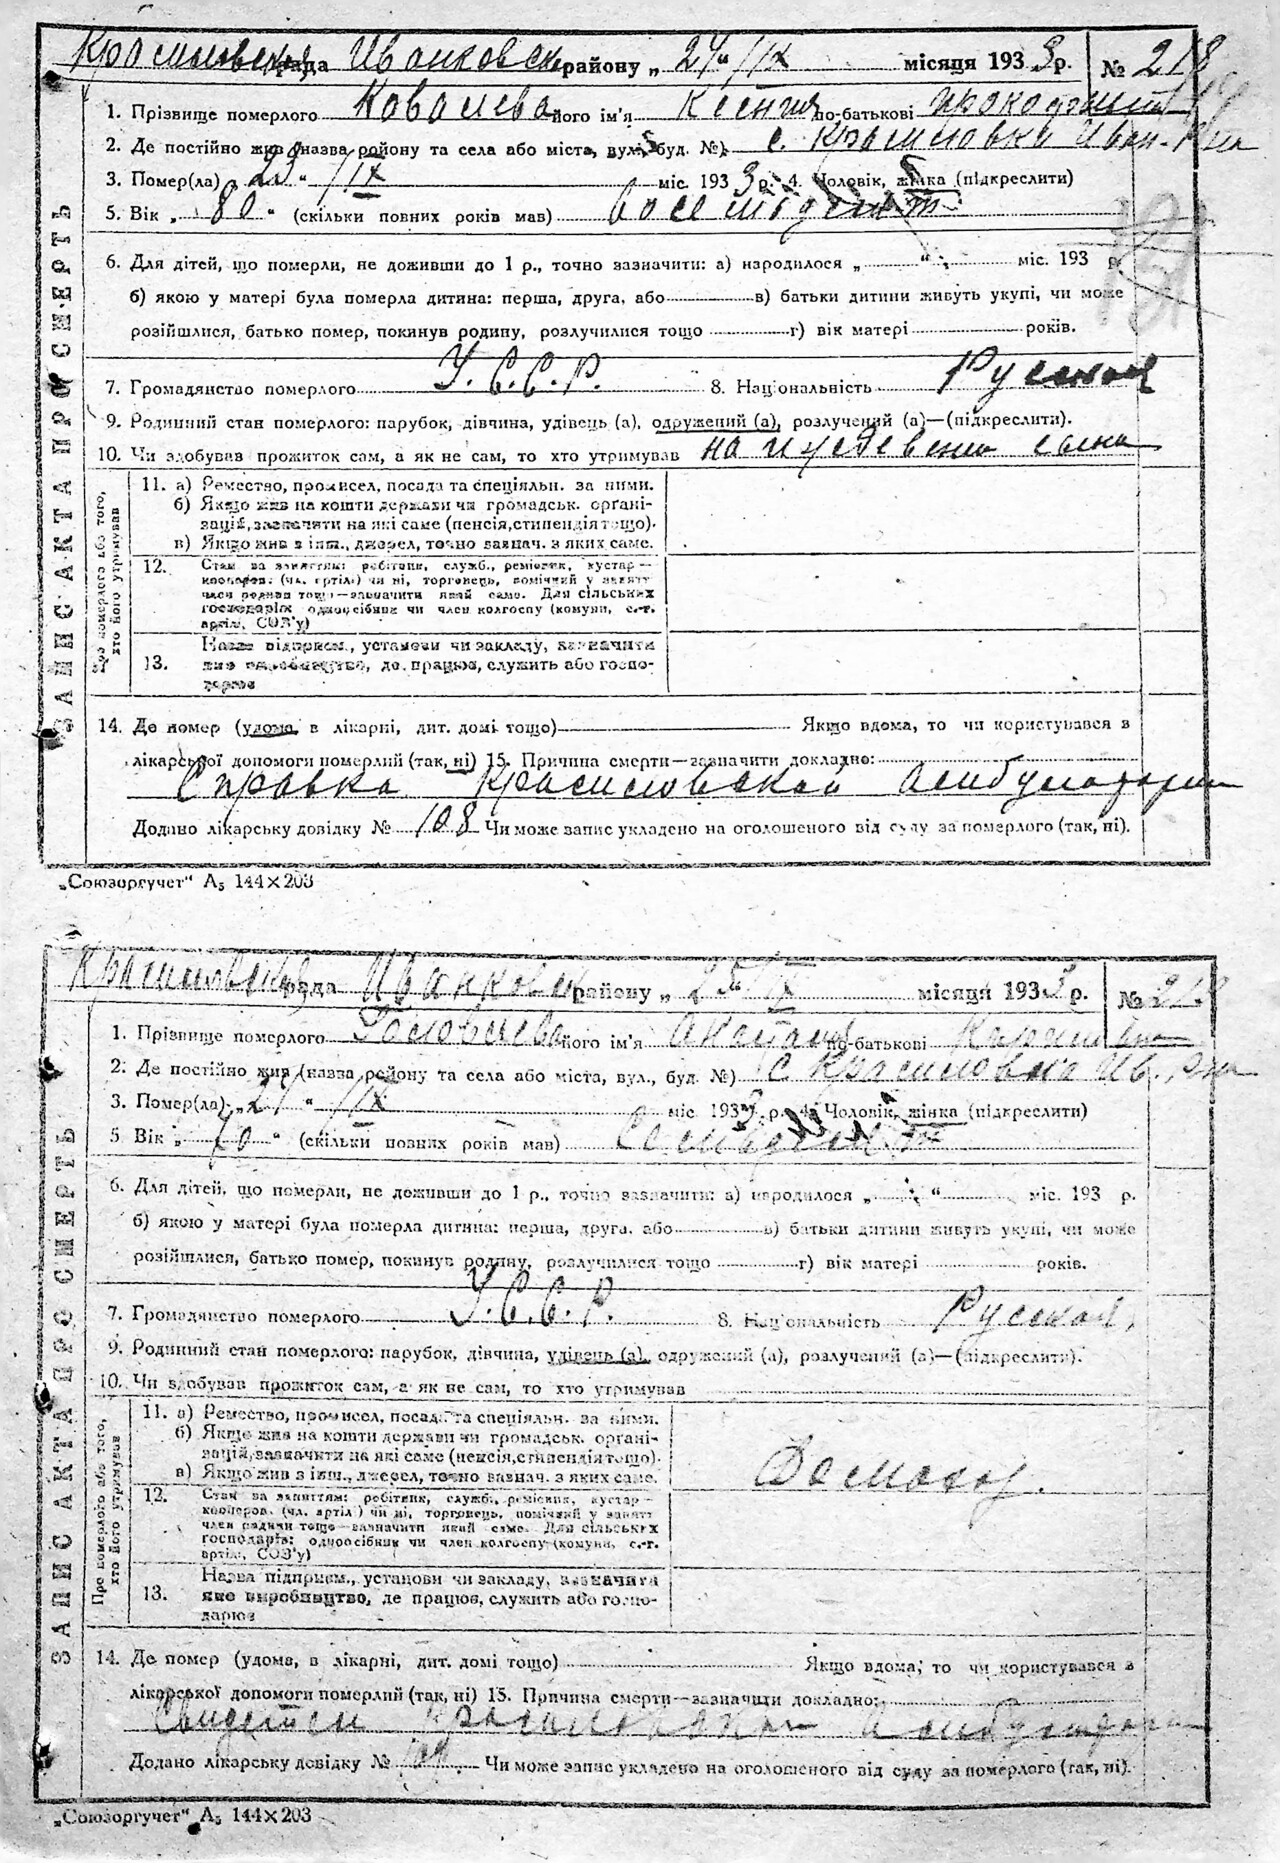 Красиловская рада Иванковск району „ 24 " /IX місяця 1933 р. № 218
1. Прізвище померлого Ковалева його ім'я Ксения по-батькові
2. Де постійно жив (назва району та села або міста, вул., буд. №) с. Красиловка Иван. р-на
3. Помер(ла) „ 23 " /IX міс. 1933 р. 4. Чоловік, жінка (підкреслити)
5. Вік „ 80 " (скільки повних років мав) восемьдесят
6. Для дітей, що померли, не доживши до 1 р., точно зазначити: а) народилося „ " міс. 193 р.
б) якою у матері була померла дитина: перша, друга, або в) батьки дитини живуть укупі, чи може
розійшлися, батько помер, покинув родину, розлучилися тощо г) вік матері років.
7. Громадянство померлого У.С.С.Р. 8. Національність Русская
9. Родинний стан померлого: парубок, дівчина, удівець (а), одружений (а), розлучений (а)—(підкреслити).
10. Чи здобував прожиток сам, а як не сам, то хто утримував на иждевении сына
ЗАПИС АКТА ПРО СМЕРТЬ
Про померлого або того,
хто його утримував
11. а) Ремество, промисел, посада та спеціяльн. за ними.
б) Якщо жив на кошти держави чи громадськ. органі-
зацій, зазначити на які саме (пенсія, стипендія тощо).
в) Якщо жив з інш., джерел, точно зазнач. з яких саме.
12. Стан за заняттям: робітник, служб., ремісник, кустар—
кооперов. (чл. артілі) чи ні, торговець, помічний у занятт
член родини тощо—зазначити який саме. Для сільських
господарів: одноосібник чи член колгоспу (комуни, с.-г.
артілі, СОЗ'у)
Назва підприєм., установи чи закладу, зазначити
13. яке виробництво, де працює, служить або госпо-
дарює
14. Де помер (удома, в лікарні, дит. домі тощо) Якщо вдома, то чи користувався з
лікарської допомоги померлий (так, ні) 15. Причина смерти—зазначити докладно:
Справка Красиловской амбулатории
Додано лікарську довідку № 108 Чи може запис укладено на оголошеного від суду за померлого (так, ні).
„Союзоргучет" А₅ 144×203
Красиловская рада Иванковск району „ 25 " /IX місяця 1933 р. №
1. Прізвище померлого його ім'я по-батькові
2. Де постійно жив (назва району та села або міста, вул., буд. №) с Красиловка Ив. р-на
3. Помер(ла) „ 24 " /IX міс. 1933 р. 4. Чоловік, жінка (підкреслити)
5 Вік „ 70 " (скільки повних років мав) Семьдесят
6. Для дітей, що померли, не доживши до 1 р., точно зазначити: а) народилося „ " міс. 193 р.
б) якою у матері була померла дитина: перша, друга, або в) батьки дитини живуть укупі, чи може
розійшлися, батько помер, покинув родину, розлучилися тощо г) вік матері років.
7. Громадянство померлого У.С.С.Р. 8. Національність Русская
9. Родинний стан померлого: парубок, дівчина, удівець (а), одружений (а), розлучений (а)—(підкреслити).
10. Чи здобував прожиток сам, а як не сам, то хто утримував
ЗАПИС АКТА ПРО СМЕРТЬ
Про померлого або того,
хто його утримував
11. а) Ремество, промисел, посада та спеціяльн. за ними.
б) Якщо жив на кошти держави чи громадськ. органі-
зацій, зазначити на які саме (пенсія, стипендія тощо).
в) Якщо жив з інш., джерел, точно зазнач. з яких саме.
Домохоз.
12. Стан за заняттям: робітник, служб., ремісник, кустар—
кооперов. (чл. артілі) чи ні, торговець, помічний у занятт
член родини тощо—зазначити який саме. Для сільських
господарів: одноосібник чи член колгоспу (комуни, с.-г.
артілі, СОЗ'у)
Назва підприєм., установи чи закладу, зазначити
13. яке виробництво, де працює, служить або госпо-
дарює
14. Де помер (удома, в лікарні, дит. домі тощо) Якщо вдома, то чи користувався з
лікарської допомоги померлий (так, ні) 15. Причина смерти—зазначити докладно:
Красиловской амбулатории
Додано лікарську довідку № Чи може запис укладено на оголошеного від суду за померлого (так, ні).
„Союзоргучет" А₅ 144×203